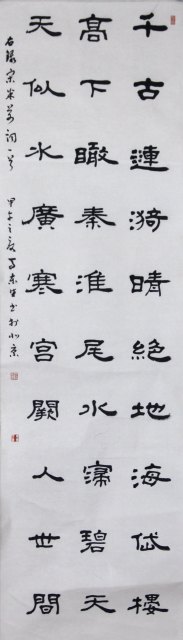 千古漣漪晴絶地海岱樓
高下瞰秦淮尾水浸碧天
天似水廣寒宮闕人世間
右録宋米芾詞一首 甲午之夏 書於北京